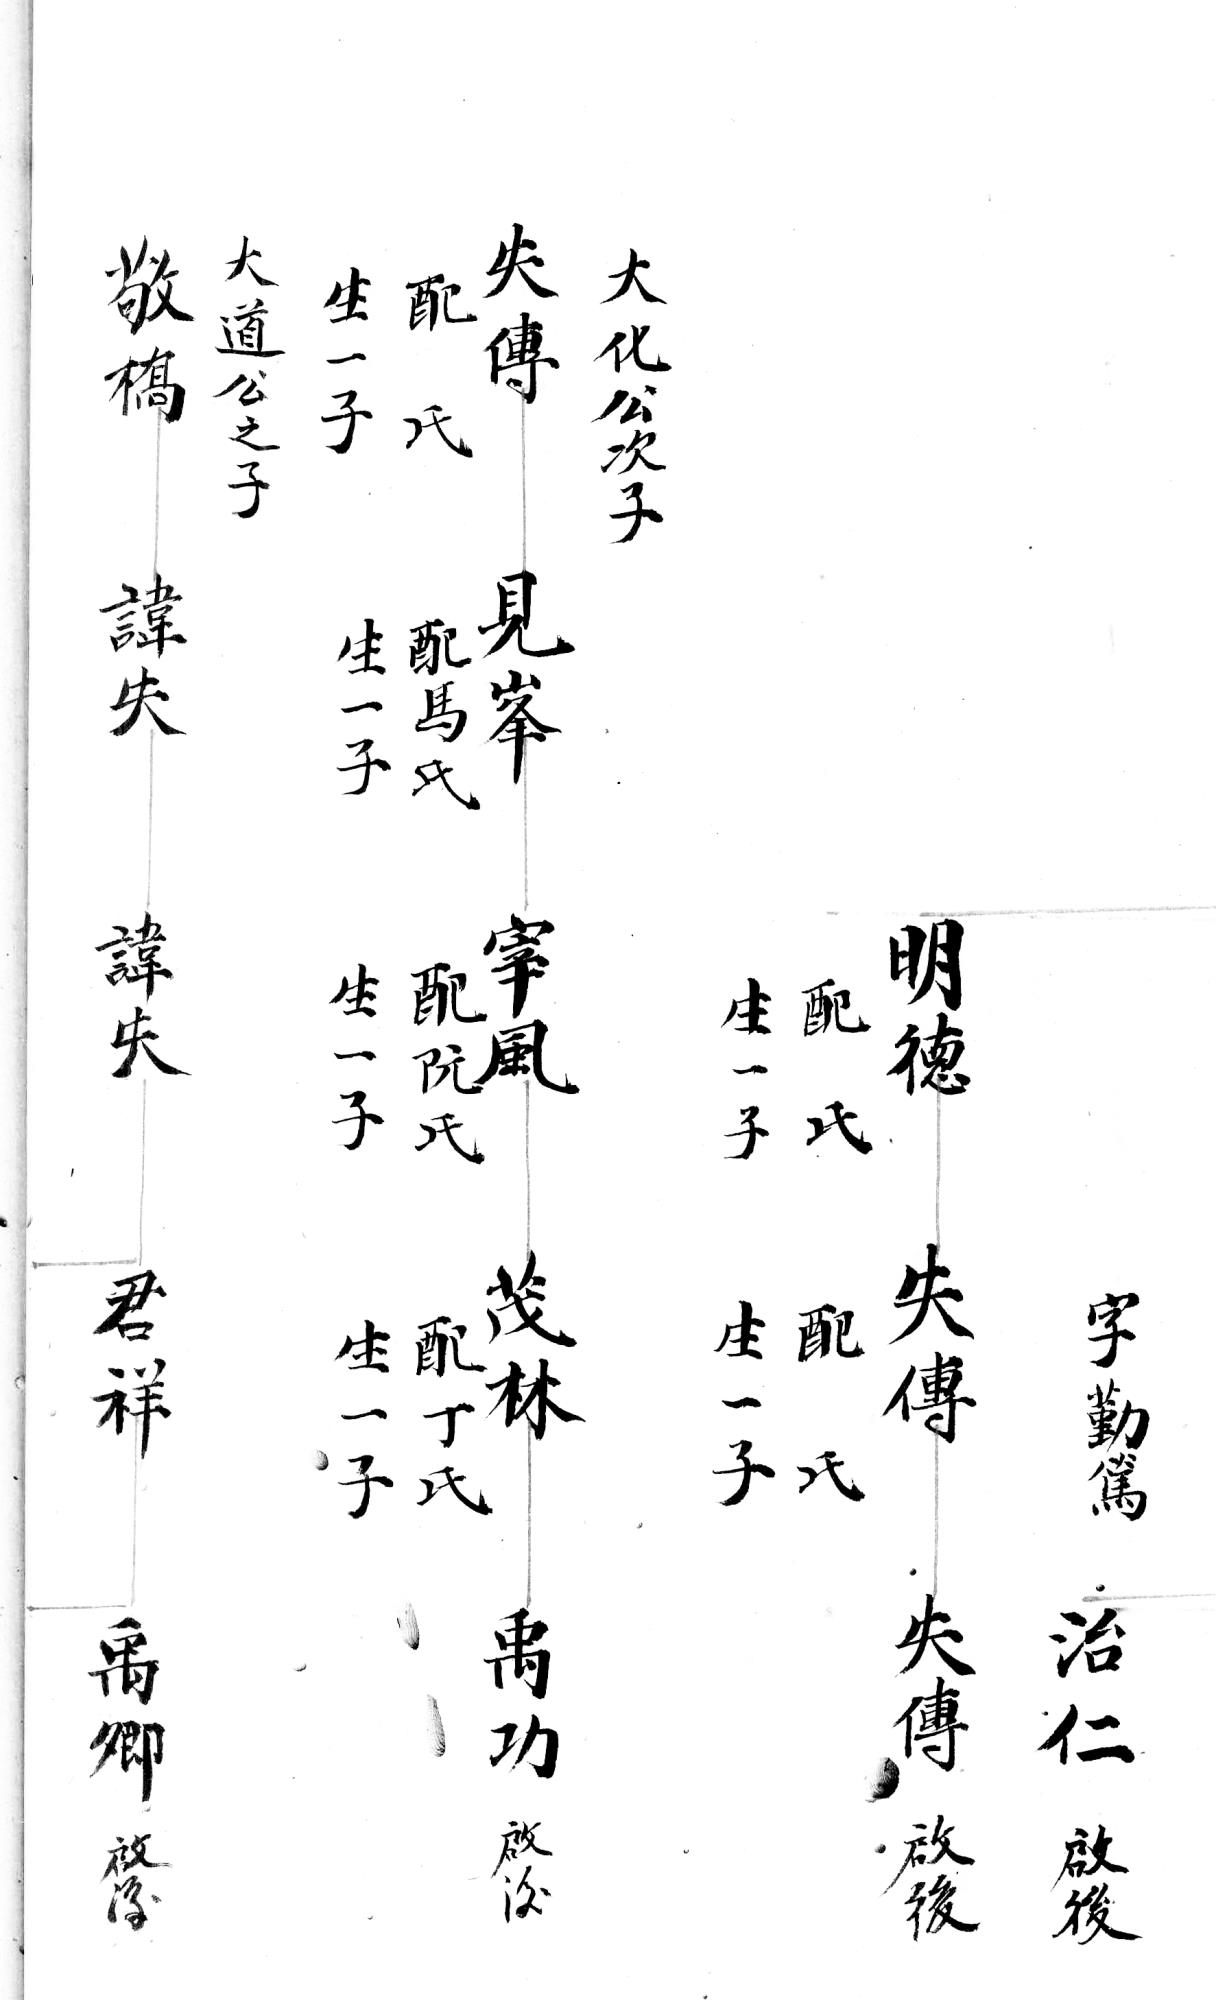 字勤篤
治仁
啟後
明德
配 氏
生一子
失傳
配 氏
生一子
失傳
啟後
大化公次子
失傳
配 氏
生一子
見峯
配馬氏
生一子
宰風
配阮氏
生一子
茂林
配丁氏
生一子
禹功
啟後
大道公之子
敬橋
諱失
諱失
君祥
禹卿
啟後